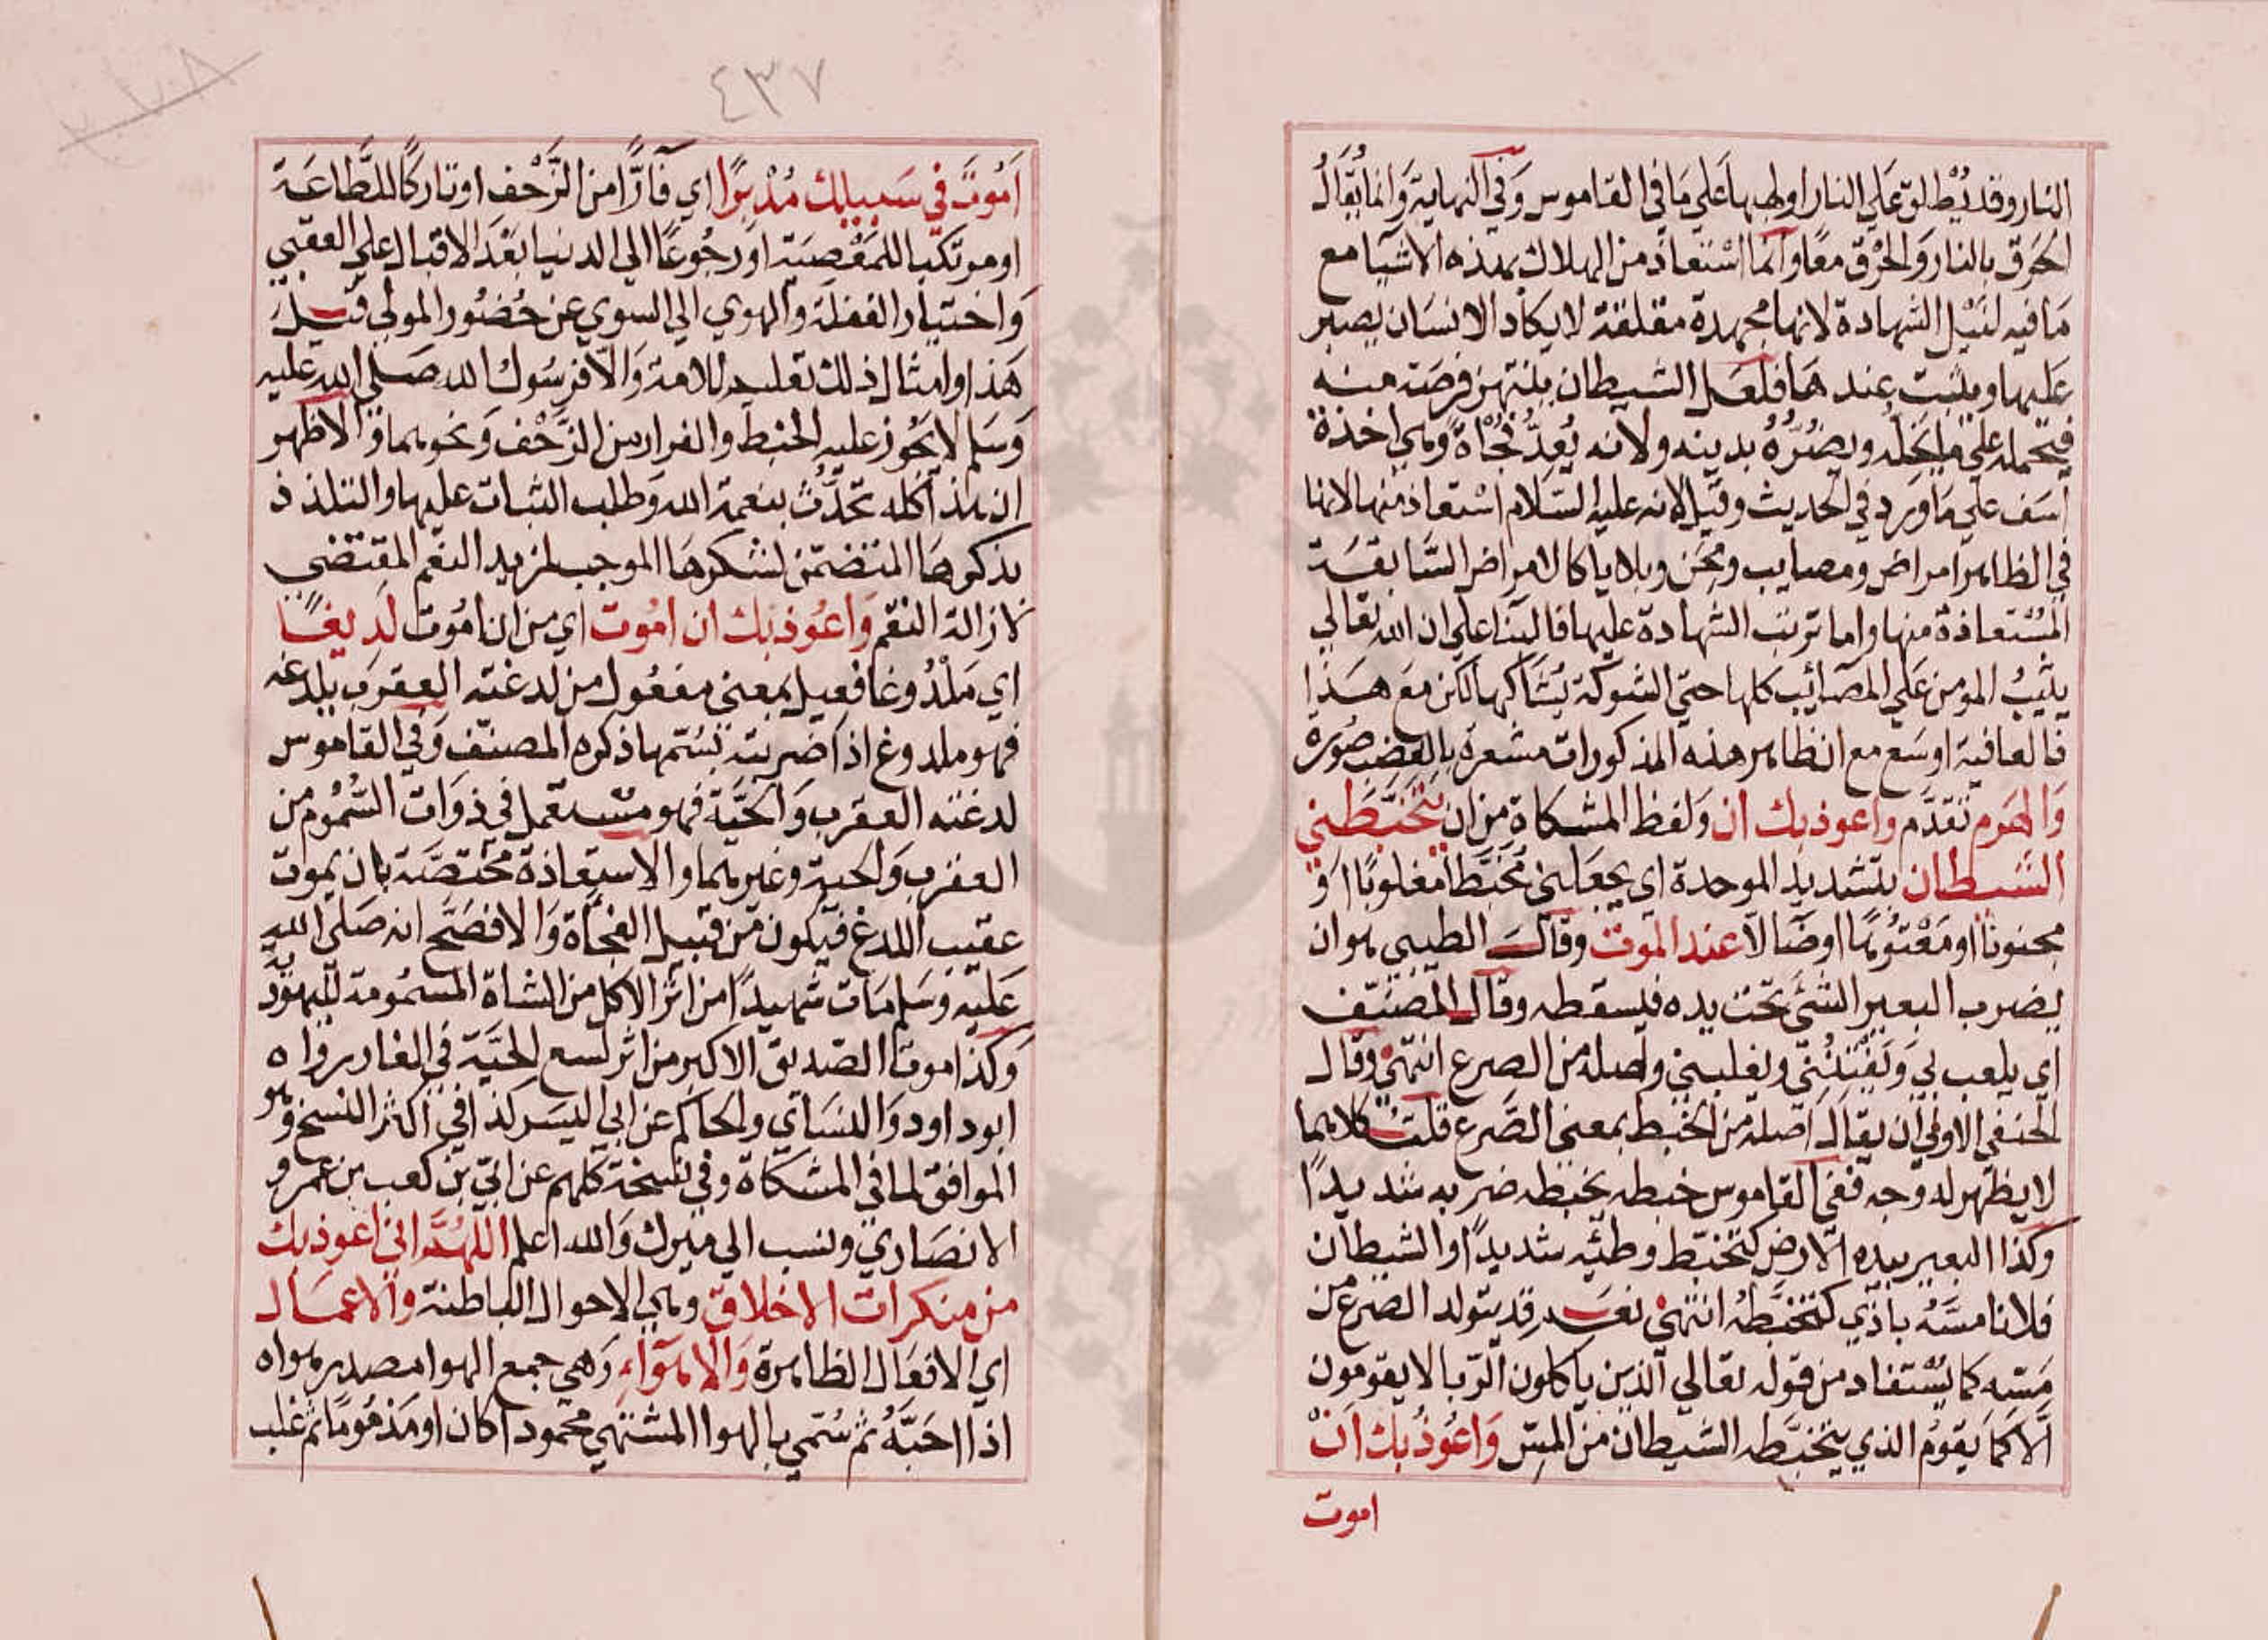 النار وقد يُطلق عَلي النار او لهبها عَلي مَا في القاموس وَفي النهاية وَانما يُقَالُ
الحَرَق بالنار وَالحَرْق معًا وَانما اسْتعَاذ من الهلاك بهذه الاشيَا مع
مَا فيه لنَيْل الشهادة لانها مجهدة مقلقة لا يكاد الانسَان يصبر
عَليها ويثبت عند هَا فلعَل الشيطان ينتهز فرصَة منه
فيَحمله علي ما يخله ويضُرّهُ بدينه ولانه يُعَدُّ فُجْأة وَهي اخذة
اسَف علي مَا وَرد في الحديث وقيل لانه عليه السَّلام اسْتعاذ منها لانها
في الظاهر امراض ومصايب ومحَن وبلايا كالامراض السَّابقَة
المُسْتعاذة منها واما ترتب الشهادة عليها فالبنا علي ان الله تعَالي
يثيبُ المومن عَلي المصَائب كلها حتي الشوكة يُشاكها لكن معَ هَذا
فالعَافية اوسَع مع ان ظاهر هذه المذكورات مشعرة بالغضب صُورة
وَالهَرم تقدَّم واعوذ بك ان وَلفظ المشكاة مِن ان يتخبَّطني
الشيطان بتشديد الموحدة اي يجعَلني مُخَبَّطا مغلوبًا اوْ
مجنونًا او مَعْتُوهًا اوضَالا عند الموَت وقالَ الطيبي هو ان
يضرب البعير الشئ تحت يده فيسقطه وقال المصَنّف
اي يلعب بي وَيَفْتِنُني ويغلبني واصله من الصرع انتهَي وقال
الحنفي الاولي ان يقالَ اصلهُ من الخبط بمعني الصَّرع قلتُ كلاهما
لا يظهر له وجه ففي القاموس خبطه يخبطه ضربه شديدًا
وكذا البعير بيده الارض كتخبّط وطئِه شديدًا والشيطان
فلانا مسَّهُ باذَي كتخَبَّطَهُ انتهَي نعَم قد يتولد الصرع من
مَسّه كما يُسْتفاد من قوله تعَالي الذين ياكلون الرّبا لا يقومون
اَلا كمَا يَقومُ الذي يتخَبَّطه الشيطان من المسّ وَاعُوذُ بك اَنْ
اموت
٤٣٧
اَمُوتَ في سَبيلك مُدْبِرًا اي فَارًّا من الزَّحْف او تاركًا للطَّاعَة
او مرتكبا للمَعْصيَة او رجُوعًا الي الدنيا بَعْدَ الاقبال علي العقبي
وَاختيار الغفلة وَالهوي الي السوي عن حُضُور المولي قيلَ
هَذا وامثال ذلك تعليم للامة وَالا فرسُوك الله صَلي الله عليه
وَسَلم لا يَجُوز عليه الخبط والفرار من الزَّحْف وَنحوهما وَالاظهر
ان هذا كله تحَدُّثٌ بنعمة الله وَطلب الثبات عليها والتلذذ
بذكرها المتضمّن لشكرها الموجب لمزيد النعَم المقتَضي
لازالة النقَم وَاعُوذ بك ان امُوت اي من ان امُوت لدِيغًا
اي مَلْدُوغا فعيل بمعني مفعُول من لدغته العقرَب يلدغه
فهو ملدوغ اذا ضربته بسُمّها ذكره المصنّف وَفي القاموس
لدغته العقرب وَالحَيَّة فهو مسْتعمل في ذوَات السُّمُوم من
العقرب وَالحية وغيرهما والاستعَاذة مختصَّة بان يموت
عقيب اللدغ فيَكون من قبيل الفجأة وَالا فصَحّ انه صَلي الله
عَليه وسَلم مَات شهيدًا من اثر الاكل من الشاة المسمُومة لليَهُوَدية
وَكذا موت الصّديق الاكبر من اثر لسع الحَيَّة في الغار رواه
ابو داود وَالنسَاي والحاكم عن ابي اليسَر كذا في اكثر النسخ وَهو
الموافق لما في المشكاة وفي نسخة كلهم عن ابَيّ بن كعب بن عمرو
الانصَاري ونسب الي ميرك وَالله اعلم اللهُمَّ اني اعوذ بك
من منكرات الاخلاق وهي الاحوال الباطنة وَالاعمَال
اي الافعَال الظاهرة وَالاهوَاءِ وَهي جمع الهوا مصدر هواه
اذا احَبَّهُ ثم سُمّي بالهوا المشتهي محمُودا كان او مَذمُومًا ثم غلب